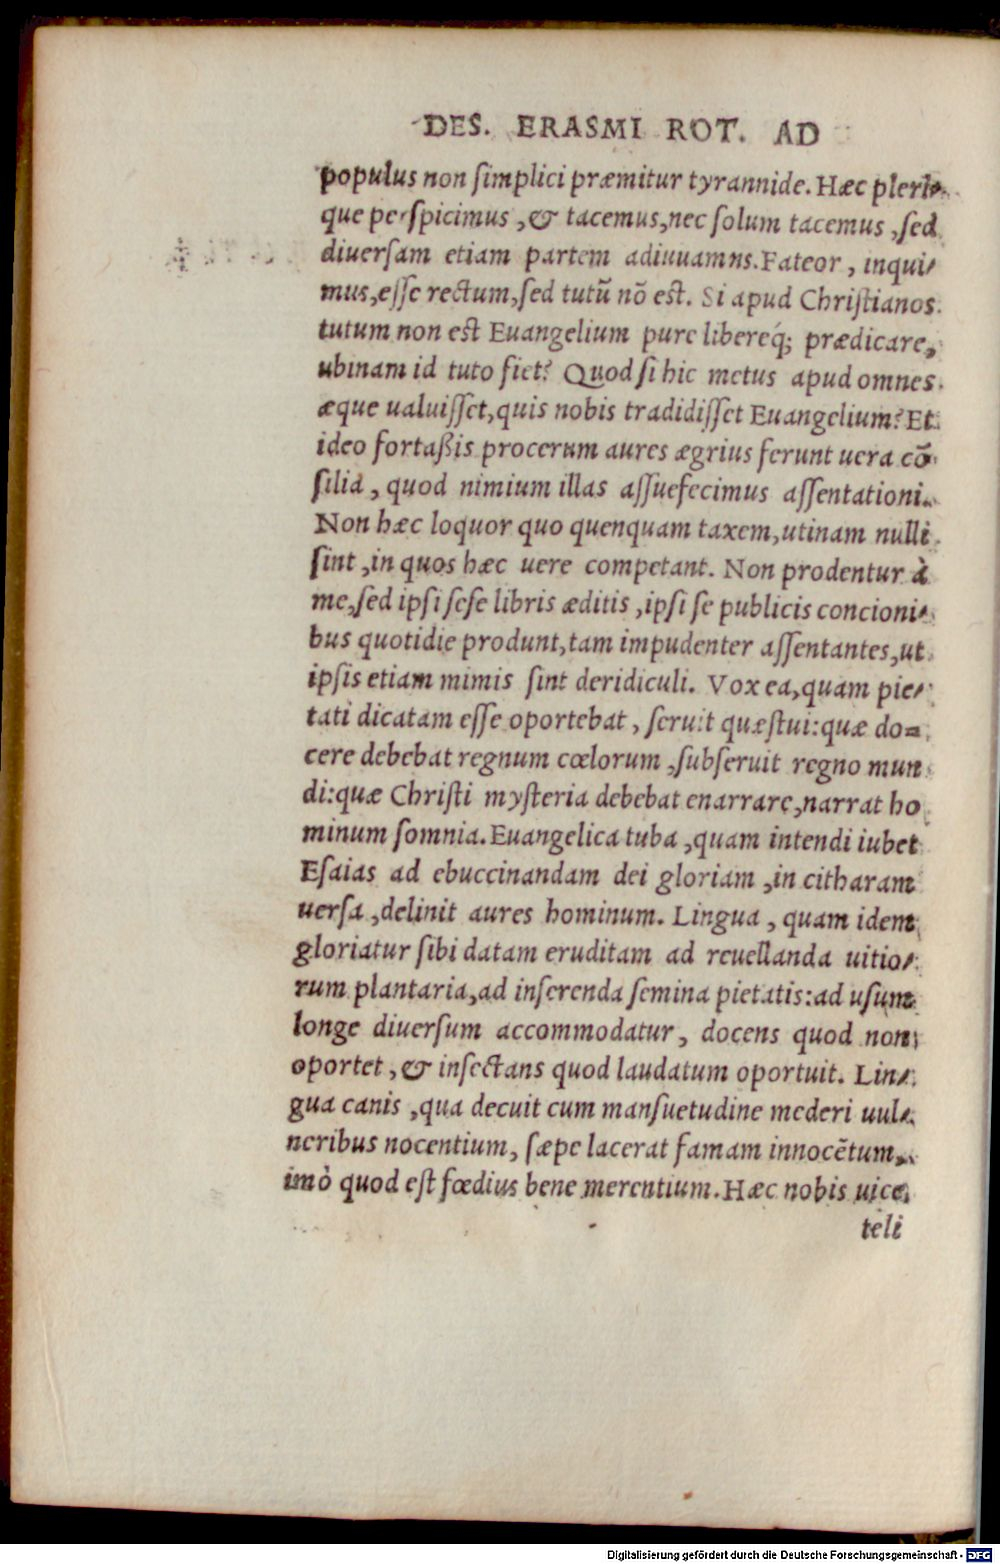 DES. ERASMI ROT. AD
populus non ſimplici præmitur tyrannide. Hæc pleri⸗
que perſpicimus, & tacemus, nec ſolum tacemus, ſed
diuerſam etiam partem adiuuamns. Fateor, inqui⸗
mus, eſſe rectum, ſed tutū nō eſt. Si apud Chriſtianos
tutum non eſt Euangelium pure libereq́; prædicare,
ubinam id tuto fiet? Quod ſi hic metus apud omnes
æque ualuiſſet, quis nobis tradidiſſet Euangelium? Et
ideo fortaßis procerum aures ægrius ferunt uera cō
ſilia, quod nimium illas aſſuefecimus aſſentationi.
Non hæc loquor quo quenquam taxem, utinam nulli
ſint, in quos hæc uere competant. Non prodentur à
me, ſed ipſi ſeſe libris æditis, ipſi ſe publicis concioni⸗
bus quotidie produnt, tam impudenter aſſentantes, ut
ipſis etiam mimis ſint deridiculi. Vox ea, quam pie⸗
tati dicatam eſſe oportebat, ſeruit quæſtui: quæ do⸗
cere debebat regnum cœlorum, ſubſeruit regno mun
di: quæ Chriſti myſteria debebat enarrare, narrat ho
minum ſomnia. Euangelica tuba, quam intendi iubet
Eſaias ad ebuccinandam dei gloriam, in citharam
uerſa, delinit aures hominum. Lingua, quam idem
gloriatur ſibi datam eruditam ad reuellanda uitio⸗
rum plantaria, ad inſerenda ſemina pietatis: ad uſum
longe diuerſum accommodatur, docens quod non
oportet, & inſectans quod laudatum oportuit. Lin⸗
gua canis, qua decuit cum manſuetudine mederi uul⸗
neribus nocentium, ſæpe lacerat famam innocētum,
imò quod eſt fœdius bene merentium. Hæc nobis uice
teli
Digitalisierung gefördert durch die Deutsche Forschungsgemeinschaft - DFG